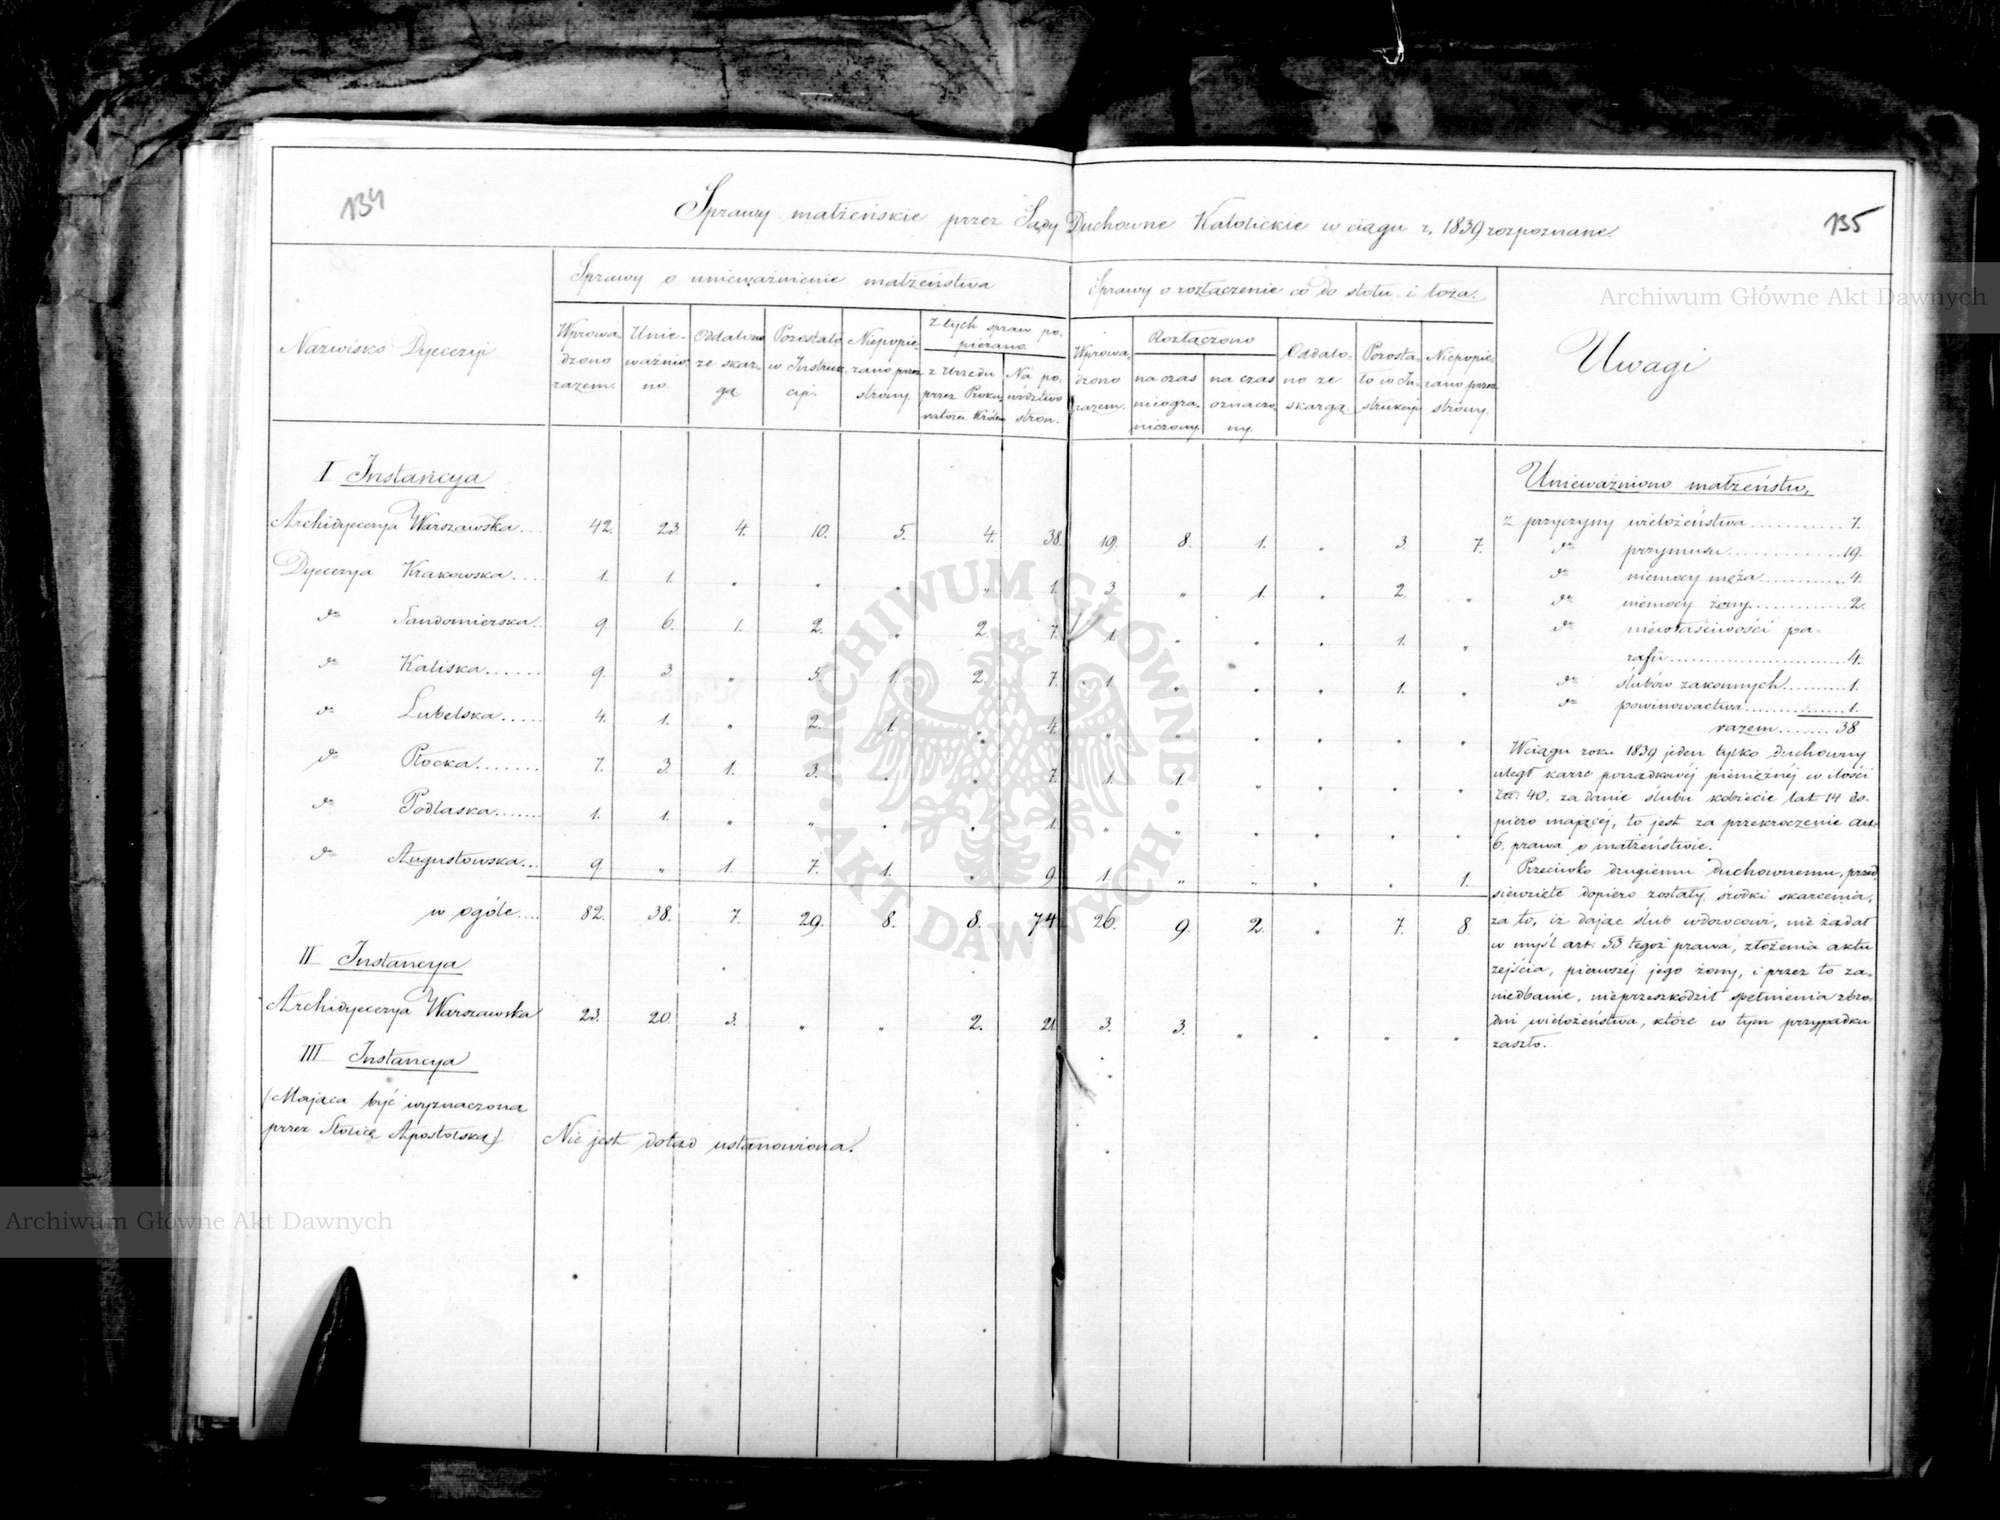 134
135
Sprawy małżeńskie przez Sądy Duchowne Katolickie w ciągu r. 1839 rozpoznane.
Nazwisko Dyecezyi
Sprawy o unieważnienie małżeństwa
Sprawy o rozłączenie co do stołu i łoża.
Uwagi
Wprowadzono razem.
Unieważniono.
Oddalono ze skargą
Pozostało w Instrukcyi.
Niepopierano przez strony
Z tych spraw popierano
z Urzędu przez Prokuratora Królew.
Na powództwo stron.
Wprowadzono razem.
Rozłączono
na czas nieograniczony.
na czas oznaczony.
Oddalono ze skargą
Pozostało w Instrukcyi
Niepopierano przez strony.
I Instancya
Archidyecezya Warszawska 42. 23. 4. 10. 5. 4. 38. 19. 8. 1. „ 3. 7.
Dyecezya Krakowska 1. 1. „ „ „ „ 1. 3. „ 1. „ 2. „
do Sandomierska 9 6. 1. 2. „ 2. 7. 1. „ „ „ 1. „
do Kaliska 9. 3. „ 5. 1. 2. 7. 1. „ „ „ 1. „
do Lubelska 4. 1. „ 2. 1. „ 4. „ „ „ „ „ „
do Płocka 7. 3. 1. 3. „ „ 7. 1. 1. „ „ „ „
do Podlaska 1. 1. „ „ „ „ 1. „ „ „ „ „ „
do Augustowska 9. „ 1. 7. 1. „ 9. 1. „ „ „ „ 1.
w ogóle 82. 38. 7. 29. 8. 8. 74 26. 9. 2. „ 7. 8.
II Instancya
Archidyecezya Warszawska 23. 20. 3. „ „ 2. 21. 3. 3. „ „ „ „
III Instancya
(Mająca być wyznaczona
przez Stolicę Apostolską) Nie jest dotąd ustanowiona.
Unieważniono małżeństw,
z przyczyny wielożeństwa 7.
do przymusu 19.
do niemocy męża 4.
do niemocy żony 2.
do niewłaściwości pa-
rafii 4.
do ślubów zakonnych 1.
do powinowactwa 1.
razem 38
W ciągu roku 1839 jeden tylko Duchowny
uległ karze porządkowéj pieniężnéj w ilości
Złł: 40. za danie ślubu kobiecie lat 14 do-
piero mającéj, to jest za przekroczenie art:
6. prawa o małżeństwie.
Przeciwko drugiemu duchownemu, przed
siewzięte dopiero zostały środki skarcenia,
za to, iż dając ślub wdowcowi, nie żądał
w myśl art: 53 tegoż prawa, złożenia aktu
zejścia, pierwszéj jego żony, i przez to za-
niedbanie, nieprzeszkodził spełnienia zbro-
dni wielożeństwa, które w tym przypadku
zaszło.
Archiwum Główne Akt Dawnych
Archiwum Główne Akt Dawnych
ARCHIWUM GŁÓWNE AKT DAWNYCH